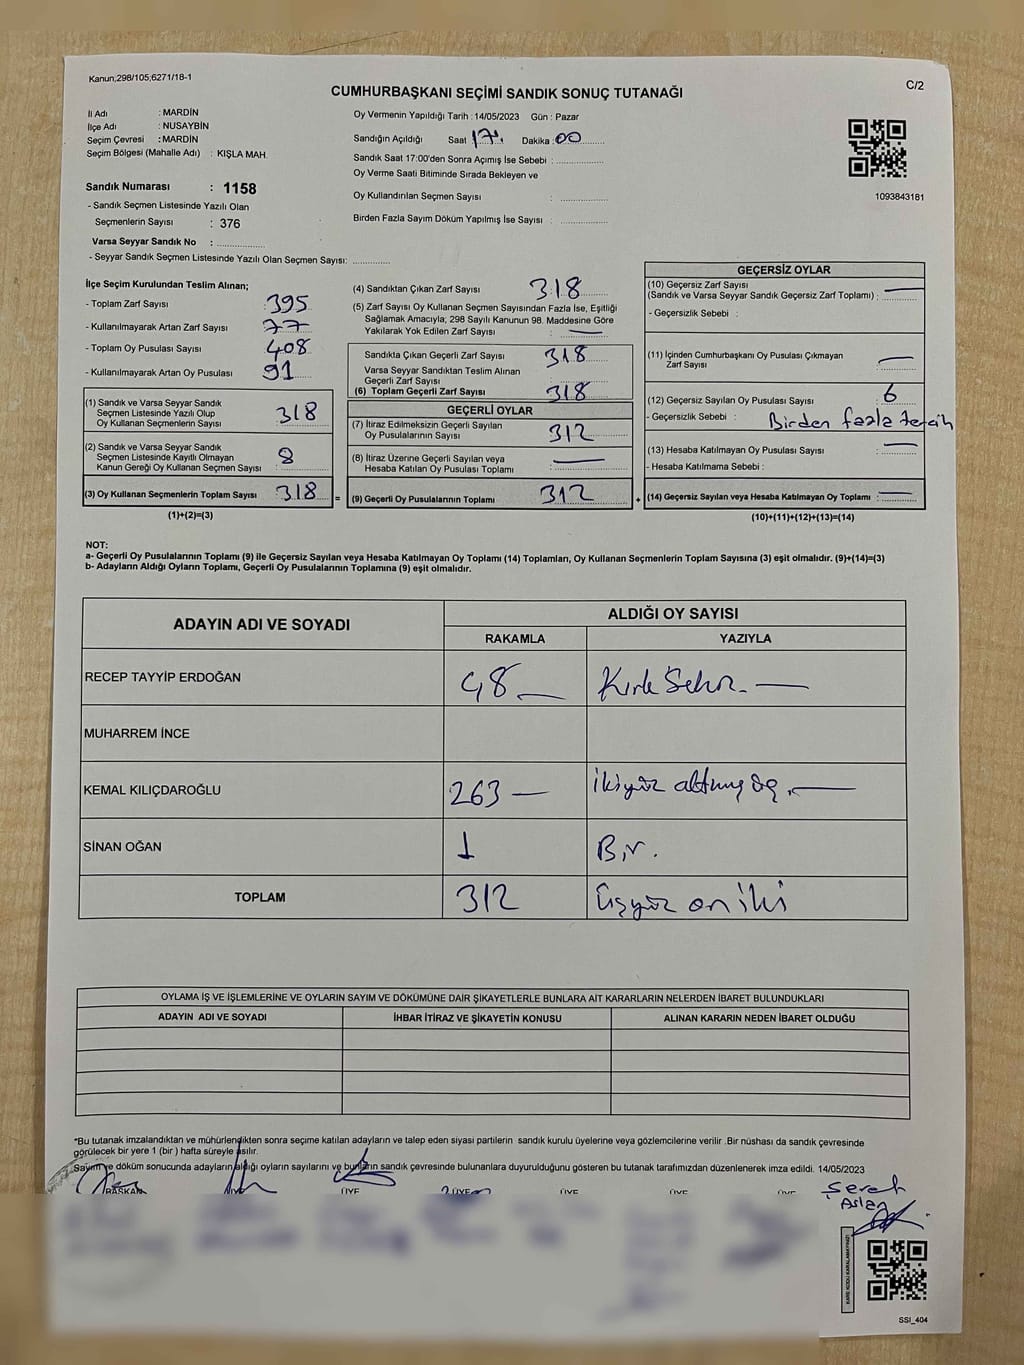 Kanun,298/105,6271/18-1
C/2
CUMHURBAŞKANI SEÇİMİ SANDIK SONUÇ TUTANAĞI
İl Adı : MARDİN
İlçe Adı : NUSAYBİN
Seçim Çevresi : MARDİN
Seçim Bölgesi (Mahalle Adı) : KIŞLA MAH.
Sandık Numarası : 1158
- Sandık Seçmen Listesinde Yazılı Olan
Seçmenlerin Sayısı : 376
Varsa Seyyar Sandık No :
- Seyyar Sandık Seçmen Listesinde Yazılı Olan Seçmen Sayısı:
Oy Vermenin Yapıldığı Tarih : 14/05/2023 Gün : Pazar
Sandığın Açıldığı Saat 17. Dakika : 00
Sandık Saat 17:00'den Sonra Açımış İse Sebebi :
Oy Verme Saati Bitiminde Sırada Bekleyen ve
Oy Kullandırılan Seçmen Sayısı :
Birden Fazla Sayım Döküm Yapılmış İse Sayısı :
1093843181
İlçe Seçim Kurulundan Teslim Alınan;
- Toplam Zarf Sayısı : 395
- Kullanılmayarak Artan Zarf Sayısı : 77
- Toplam Oy Pusulası Sayısı : 408
- Kullanılmayarak Artan Oy Pusulası : 91
(1) Sandık ve Varsa Seyyar Sandık
Seçmen Listesinde Yazılı Olup
Oy Kullanan Seçmenlerin Sayısı : 318
(2) Sandık ve Varsa Seyyar Sandık
Seçmen Listesinde Kayıtlı Olmayan
Kanun Gereği Oy Kullanan Seçmen Sayısı : 8
(3) Oy Kullanan Seçmenlerin Toplam Sayısı : 318 =
(1)+(2)=(3)
(4) Sandıktan Çıkan Zarf Sayısı : 318
(5) Zarf Sayısı Oy Kullanan Seçmen Sayısından Fazla İse, Eşitliği
Sağlamak Amacıyla; 298 Sayılı Kanunun 98. Maddesine Göre
Yakılarak Yok Edilen Zarf Sayısı : —
Sandıkta Çıkan Geçerli Zarf Sayısı : 318
Varsa Seyyar Sandıktan Teslim Alınan
Geçerli Zarf Sayısı :
(6) Toplam Geçerli Zarf Sayısı : 318
GEÇERLİ OYLAR
(7) İtiraz Edilmeksizin Geçerli Sayılan
Oy Pusulalarının Sayısı : 312
(8) İtiraz Üzerine Geçerli Sayılan veya
Hesaba Katılan Oy Pusulası Toplamı : —
(9) Geçerli Oy Pusulalarının Toplamı : 312 +
GEÇERSİZ OYLAR
(10) Geçersiz Zarf Sayısı
(Sandık ve Varsa Seyyar Sandık Geçersiz Zarf Toplamı) : —
- Geçersizlik Sebebi :
(11) İçinden Cumhurbaşkanı Oy Pusulası Çıkmayan
Zarf Sayısı : —
(12) Geçersiz Sayılan Oy Pusulası Sayısı : 6
- Geçersizlik Sebebi : Birden fazla tercih
(13) Hesaba Katılmayan Oy Pusulası Sayısı : —
- Hesaba Katılmama Sebebi :
(14) Geçersiz Sayılan veya Hesaba Katılmayan Oy Toplamı : —
(10)+(11)+(12)+(13)=(14)
NOT:
a- Geçerli Oy Pusulalarının Toplamı (9) ile Geçersiz Sayılan veya Hesaba Katılmayan Oy Toplamı (14) Toplamları, Oy Kullanan Seçmenlerin Toplam Sayısına (3) eşit olmalıdır. (9)+(14)=(3)
b- Adayların Aldığı Oyların Toplamı, Geçerli Oy Pusulalarının Toplamına (9) eşit olmalıdır.
ADAYIN ADI VE SOYADI
ALDIĞI OY SAYISI
RAKAMLA YAZIYLA
RECEP TAYYİP ERDOĞAN 48 — Kırk Sekiz. —
MUHARREM İNCE
KEMAL KILIÇDAROĞLU 263 — ikiyüz altmış üç. —
SİNAN OĞAN 1 Bir.
TOPLAM 312 üçyüz on iki
OYLAMA İŞ VE İŞLEMLERİNE VE OYLARIN SAYIM VE DÖKÜMÜNE DAİR ŞİKAYETLERLE BUNLARA AİT KARARLARIN NELERDEN İBARET BULUNDUKLARI
ADAYIN ADI VE SOYADI İHBAR İTİRAZ VE ŞİKAYETİN KONUSU ALINAN KARARIN NEDEN İBARET OLDUĞU
*Bu tutanak imzalandıktan ve mühürlendikten sonra seçime katılan adayların ve talep eden siyasi partilerin sandık kurulu üyelerine veya gözlemcilerine verilir .Bir nüshası da sandık çevresinde
görülecek bir yere 1 (bir ) hafta süreyle asılır.
Sayım ve döküm sonucunda adayların aldığı oyların sayılarını ve bunların sandık çevresinde bulunanlara duyurulduğunu gösteren bu tutanak tarafımızdan düzenlenerek imza edildi. 14/05/2023
BAŞKAN ÜYE ÜYE ÜYE ÜYE ÜYE ÜYE
Şeref
Aslan
KARE KODU KARALAMAYINIZ!
SSI_404